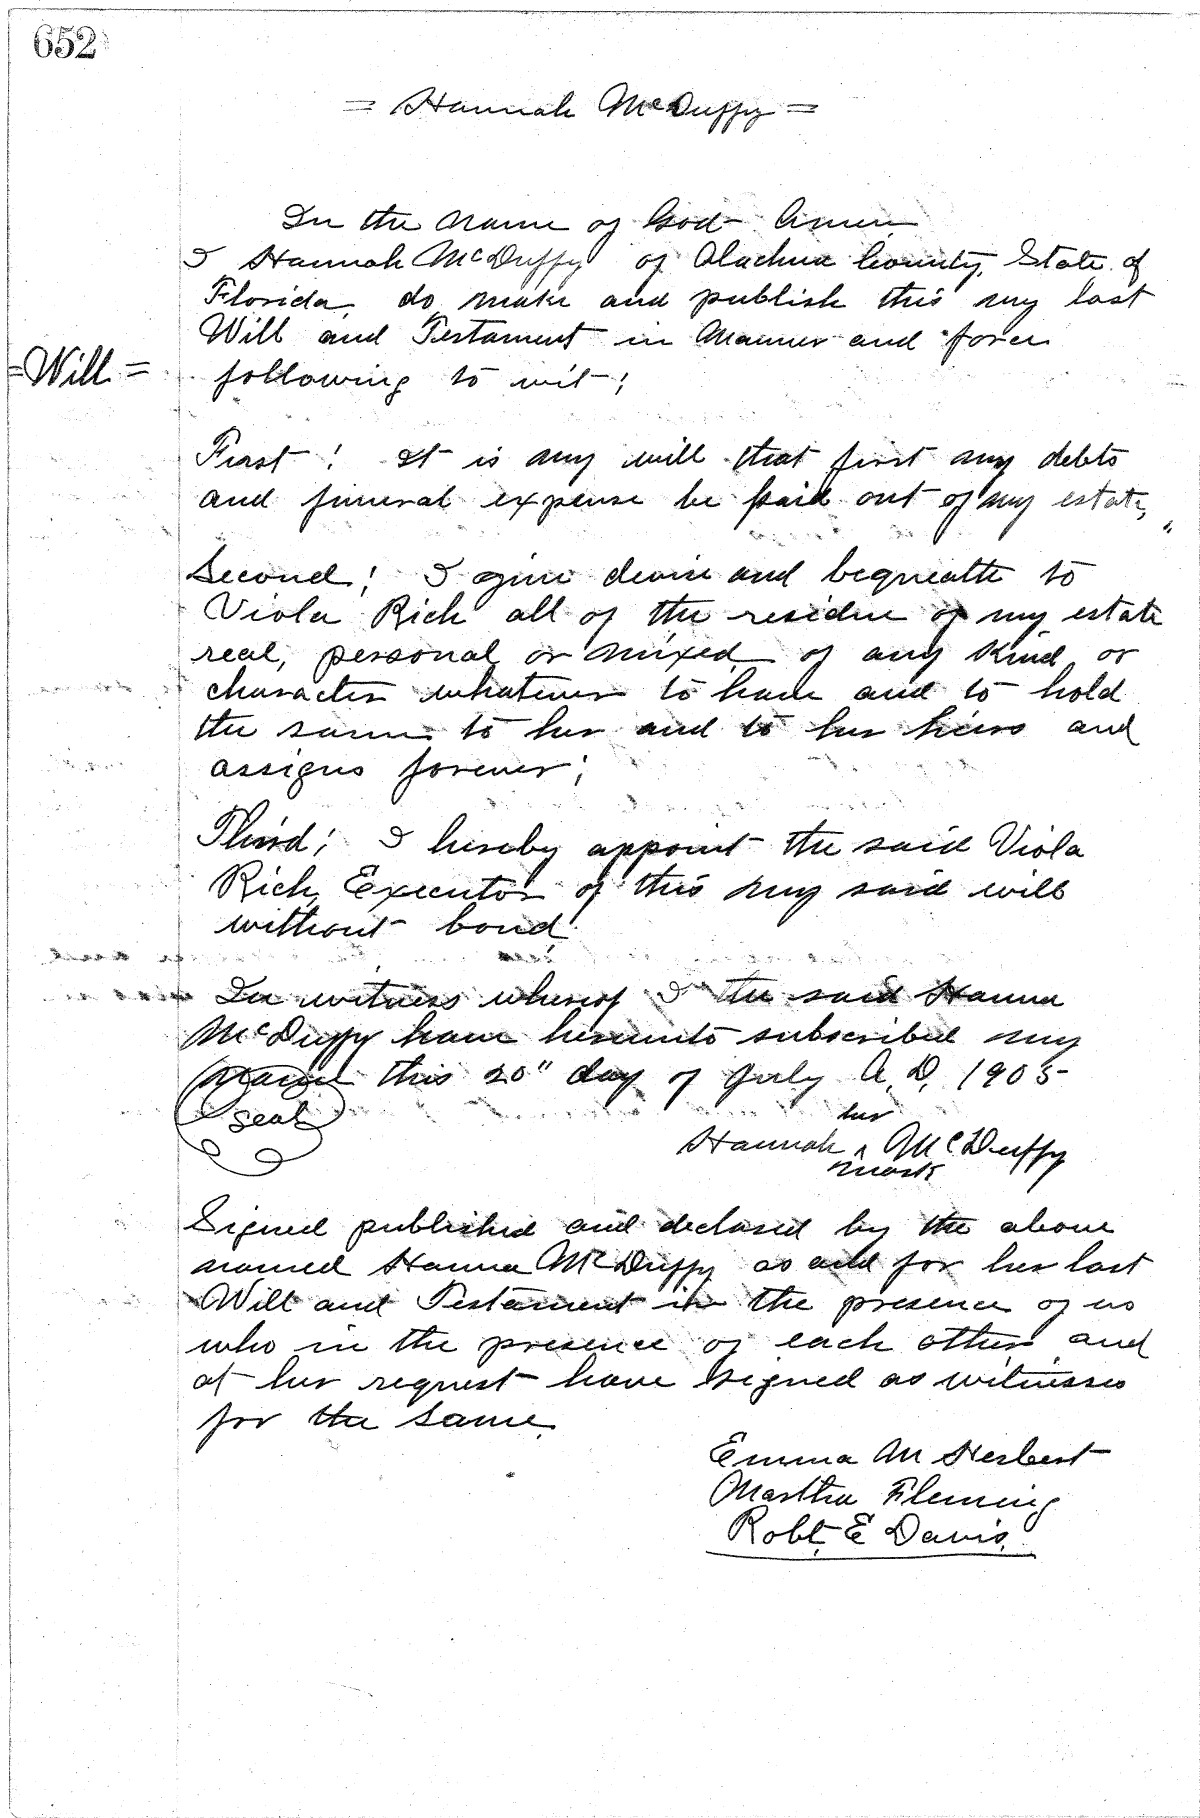 652
= Hannah McDuffy =
In the name of God Amen
I Hannah McDuffy of Alachua County, State of
Florida, do make and publish this my last
Will and Testament in manner and form
=Will=
following to wit;
First! It is my will that first my debts
and funeral expense be paid out of my estate,
Second! I give devise and bequeathe to
Viola Rich all of the residue of my estate
real, personal or mixed of any kind or
character whatever to have and to hold
the same to her and to her heirs and
assigns forever;
Third; I hereby appoint the said Viola
Rich, Executor of this my said will
without bond.
In witness whereof I the said Hanna
McDuffy have hereunto subscribed my
name this 20" day of July A.D. 1905
seal
her
Hannah ^ McDuffy
mark
Signed published and declared by the above
named Hanna McDuffy as and for her last
Will and Testament in the presence of us
who in the presence of each other and
at her request have signed as witnesses
for the same.
Emma M Herbert
Martha Fleming
Robt. E Davis.